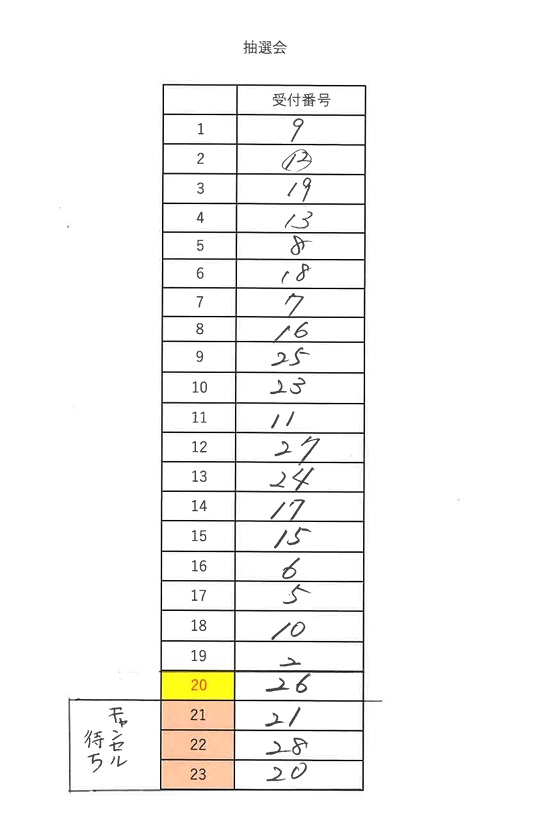 抽選会
受付番号
1 9
2 12
3 19
4 13
5 8
6 18
7 7
8 16
9 25
10 23
11 11
12 27
13 24
14 17
15 15
16 6
17 5
18 10
19 2
20 26
21 21
22 28
23 20
キャンセル
待ち